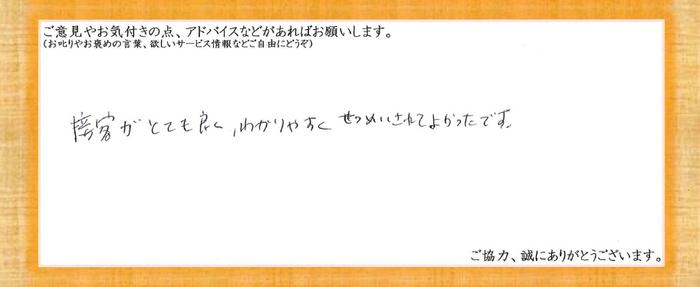 ご意見やお気付きの点、アドバイスなどがあればお願いします。
(お叱りやお褒めの言葉、欲しいサービス情報などご自由にどうぞ)
接客がとても良く、わかりやすく せつめいされてよかったです。
ご協力、誠にありがとうございます。